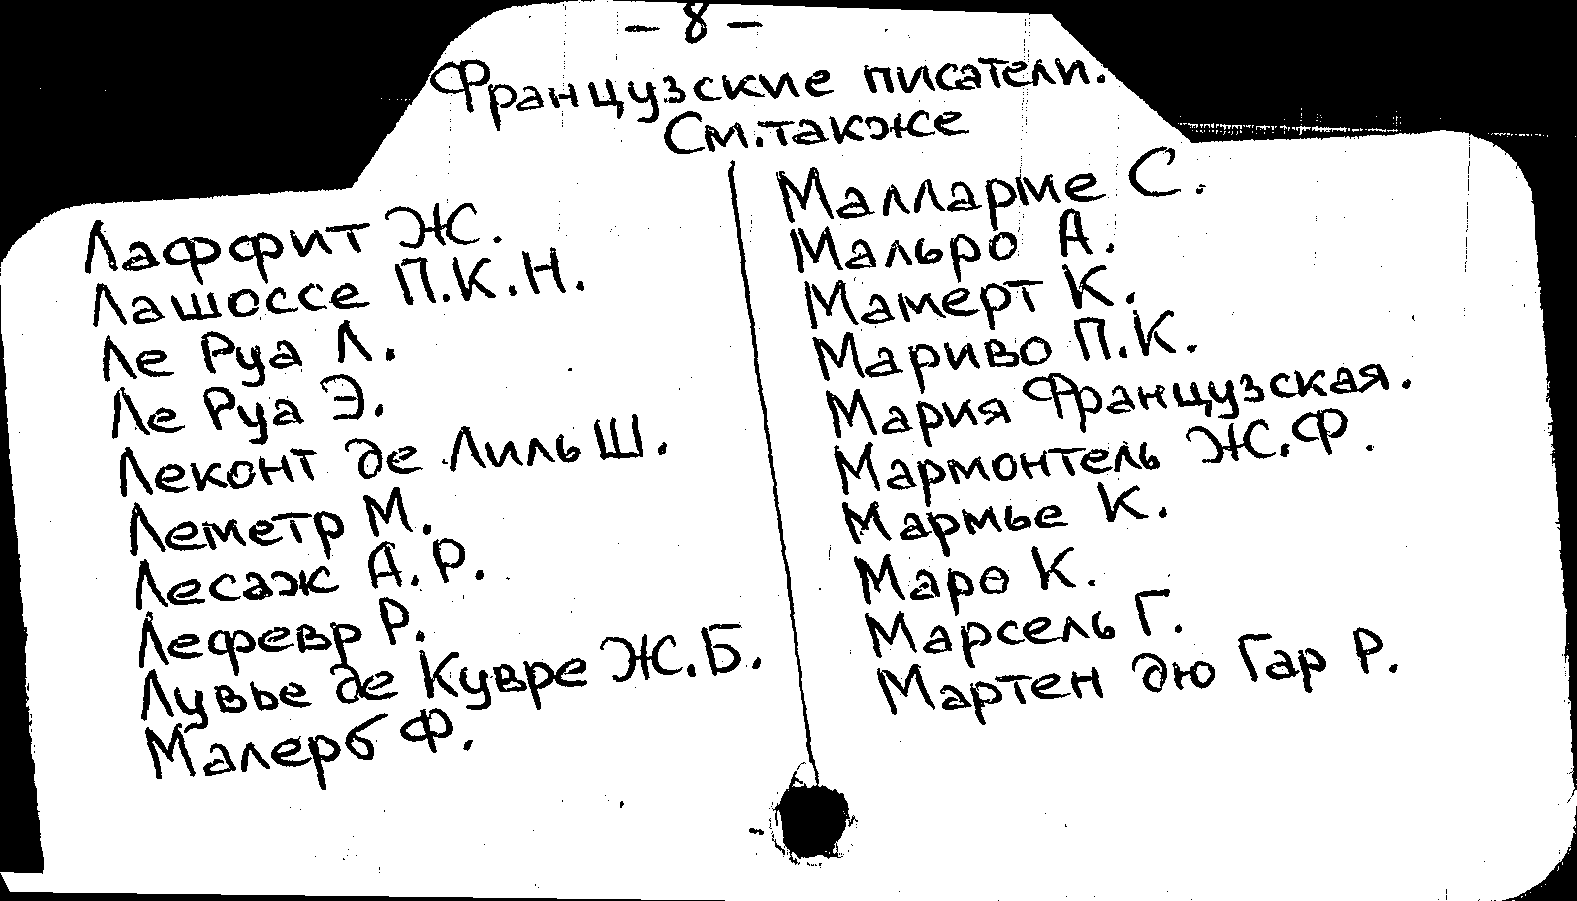 – 8 –
Французские писатели.
См. также
Лаффит Ж.
Лашоссе П.К.Н.
Ле Руа Л.
Ле Руа Э.
Леконт де Лиль Ш.
Леметр М.
Лесаж А.Р.
Лефевр Р.
Лувье де Кувре Ж.Б.
Малерб Ф.
Малларме С.
Мальро А.
Мамерт К.
Мариво П.К.
Мария Французская.
Мармонтель Ж.Ф.
Мармье К.
Маро К.
Марсель Г.
Мартен дю Гар Р.